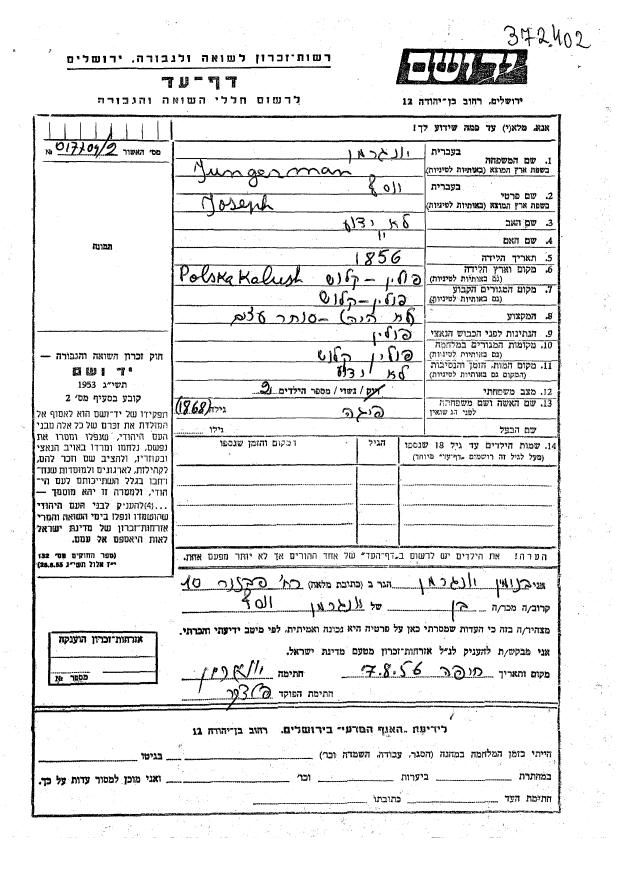 372.402
רשות-זכרון לשואה ולגבורה, ירושלים
דף-עד
לרשום חללי השואה והגבורה
יד ושם
ירושלים, רחוב בן-יהודה 12
אנא, מלא(י) עד כמה שידוע לך!
מס׳ האשור 017709/2 №
תמונה
1. שם המשפחה בעברית יונגרמן
בשפת ארץ המוצא (באותיות לטיניות) Jungerman
2. שם פרטי בעברית יוסף
בשפת ארץ המוצא (באותיות לטיניות) Joseph
3. שם האב לא ידוע
4. שם האם
5. תאריך הלידה 1856
6. מקום וארץ הלידה (גם באותיות לטיניות) פולין - קלוש Polska Kalush
7. מקום המגורים הקבוע (גם באותיות לטיניות) פולין - קלוש
8. המקצוע סוחר עצים
9. הנתינות לפני הכבוש הנאצי פולין
10. מקומות המגורים במלחמה (גם באותיות לטיניות) פולין קלוש
11. מקום המות, הזמן והנסיבות (המקום גם באותיות לטיניות) לא ידוע
12. מצב משפחתי רווק / נשוי / מספר הילדים 2
13. שם האשה ושם משפחתה לפני הנשואין פיגה גילה (1868)
שם הבעל גילו
14. שמות הילדים עד גיל 18 שנספו (מעל לגיל זה רושמים "דף-עד" מיוחד) הגיל המקום והזמן שנספו
חוק זכרון השואה והגבורה —
יד ושם
תשי״ג 1953
קובע בסעיף מס׳ 2
תפקידו של יד-ושם הוא לאסוף אל
המולדת את זכרם של כל אלה מבני
העם היהודי, שנפלו ומסרו את
נפשם, נלחמו ומרדו באויב הנאצי
ובעוזריו, ולהציב שם וזכר להם,
לקהילות, לארגונים ולמוסדות שנח־
רבו בגלל השתייכותם לעם הי־
הודי, ולמטרה זו יהא מוסמך —
...(4) להעניק לבני העם היהודי
שהושמדו ונפלו בימי השואה והמרי
אזרחות-זכרון של מדינת ישראל
לאות היאספם אל עמם.
(ספר החוקים מס׳ 132
י״ז אלול תשי״ג 28.8.53)
הערה! את הילדים יש לרשום ב"דף-העד" של אחד ההורים אך לא יותר מפעם אחת.
אני בנימין יונגרמן הגר ב (כתובת מלאה) רח׳ 10
קרוב/ה מכר/ה בן של יונגרמן יוסף
מצהיר/ה בזה כי העדות שמסרתי כאן על פרטיה היא נכונה ואמיתית, לפי מיטב ידיעתי והכרתי.
אני מבקש/ת להעניק לנ״ל אזרחות-זכרון מטעם מדינת ישראל.
מקום ותאריך חיפה 7.8.56 חתימה
חתימת הפוקד
אזרחות-זכרון הוענקה
מספר №
לידיעת "האגף המדעי" בירושלים, רחוב בן-יהודה 12
הייתי בזמן המלחמה במחנה (הסגר, עבודה, השמדה וכו׳) בגיטו
במחתרת ביערות וכו׳ ואני מוכן למסור עדות על כך.
חתימת העד כתובתו